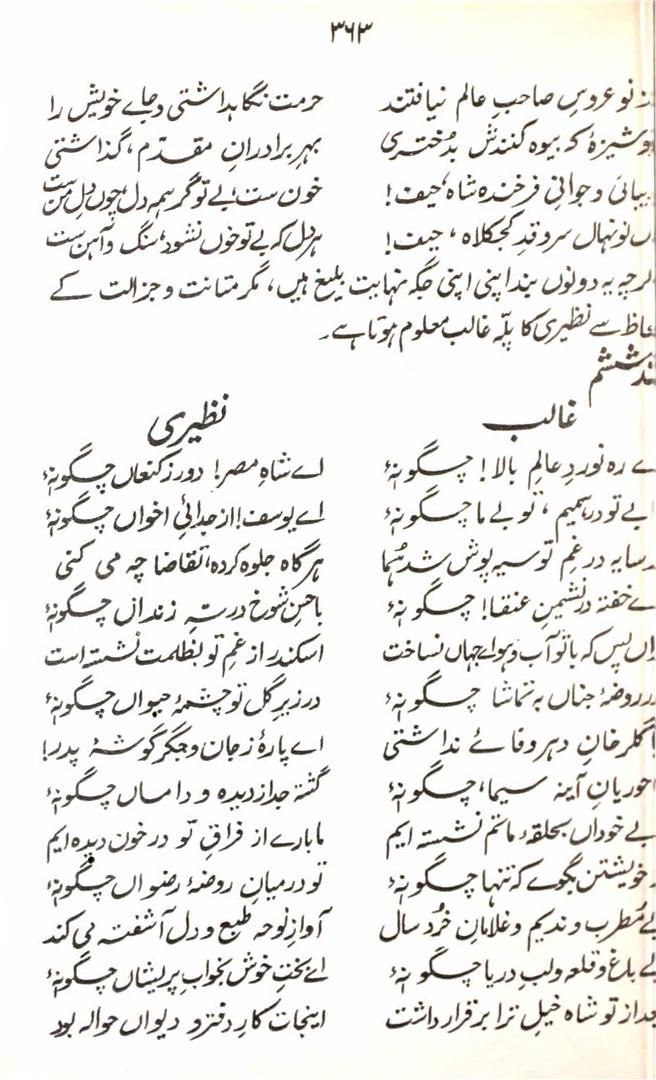 ۳۶۳
نو عروسِ صاحبِ عالم نیافتند
حرمت نگاہداشتی و جاے خویش را
کہ بیوہ کنندش بدُختری
بہرِ برادرانِ مقدّم، گذاشتی
و جوانیِ فرخندہ شاہ، حیف!
خون ست، بے تو گر ہمہ دل، چوں دلِ من ست
نونہالِ سرو قدِ کجکلاہ، حیف!
ہر دل کہ بے تو خوں نشود، سنگ و آہن ست
یہ دونوں بند اپنی اپنی جگہ نہایت بلیغ ہیں، مگر متانت و جزالت کے
سے نظیری کا پلّہ غالب معلوم ہوتا ہے۔
ششم
غالب
نظیری
رہ نوردِ عالمِ بالا! چگونۂ
اے شاہِ مصر! دور ز کنعاں چگونۂ
بے تو درہمیم، تو بے ما چگونۂ
اے یوسف! از جدائیِ اخواں چگونۂ
سایہ در غمِ تو سیہ پوش شد ہُما
ہر گاہ جلوہ کردہ، تقاضا چہ می کنی
خفتہ در نشیمنِ عنقا! چگونۂ
با حسنِ شوخ در تہِ زنداں چگونۂ
پس کہ با تو آب و ہواے جہاں نساخت
اسکندر از غمِ تو بظلمت نشستہ است
روضۂ جناں بہ تماشا چگونۂ
در زیرِ گل تو چشمۂ حیواں چگونۂ
گلرخانِ دہر وفائے نداشتی
اے پارۂ ز جان و جگر گوشۂ پدر!
حوریانِ آینہ سیما، چگونۂ
گشتہ جدا ز دیدہ و داماں چگونۂ
بے خوداں بحلقۂ ماتم نشستہ ایم
ما بارے از فراقِ تو در خون دیدہ ایم
خویشتن بگوے کہ تنہا چگونۂ
تو درمیانِ روضۂ رضواں چگونۂ
مُطرب و ندیم و غلامانِ خُرد سال
آوازِ نوحہ طبع و دل آشفتہ می کند
باغ و قلعہ و لبِ دریا چگونۂ
اے بختِ خوش بخوابِ پریشاں چگونۂ
از تو شاہ خیلِ ترا برقرار داشت
اینجات کارِ دفتر و دیواں حوالہ بود